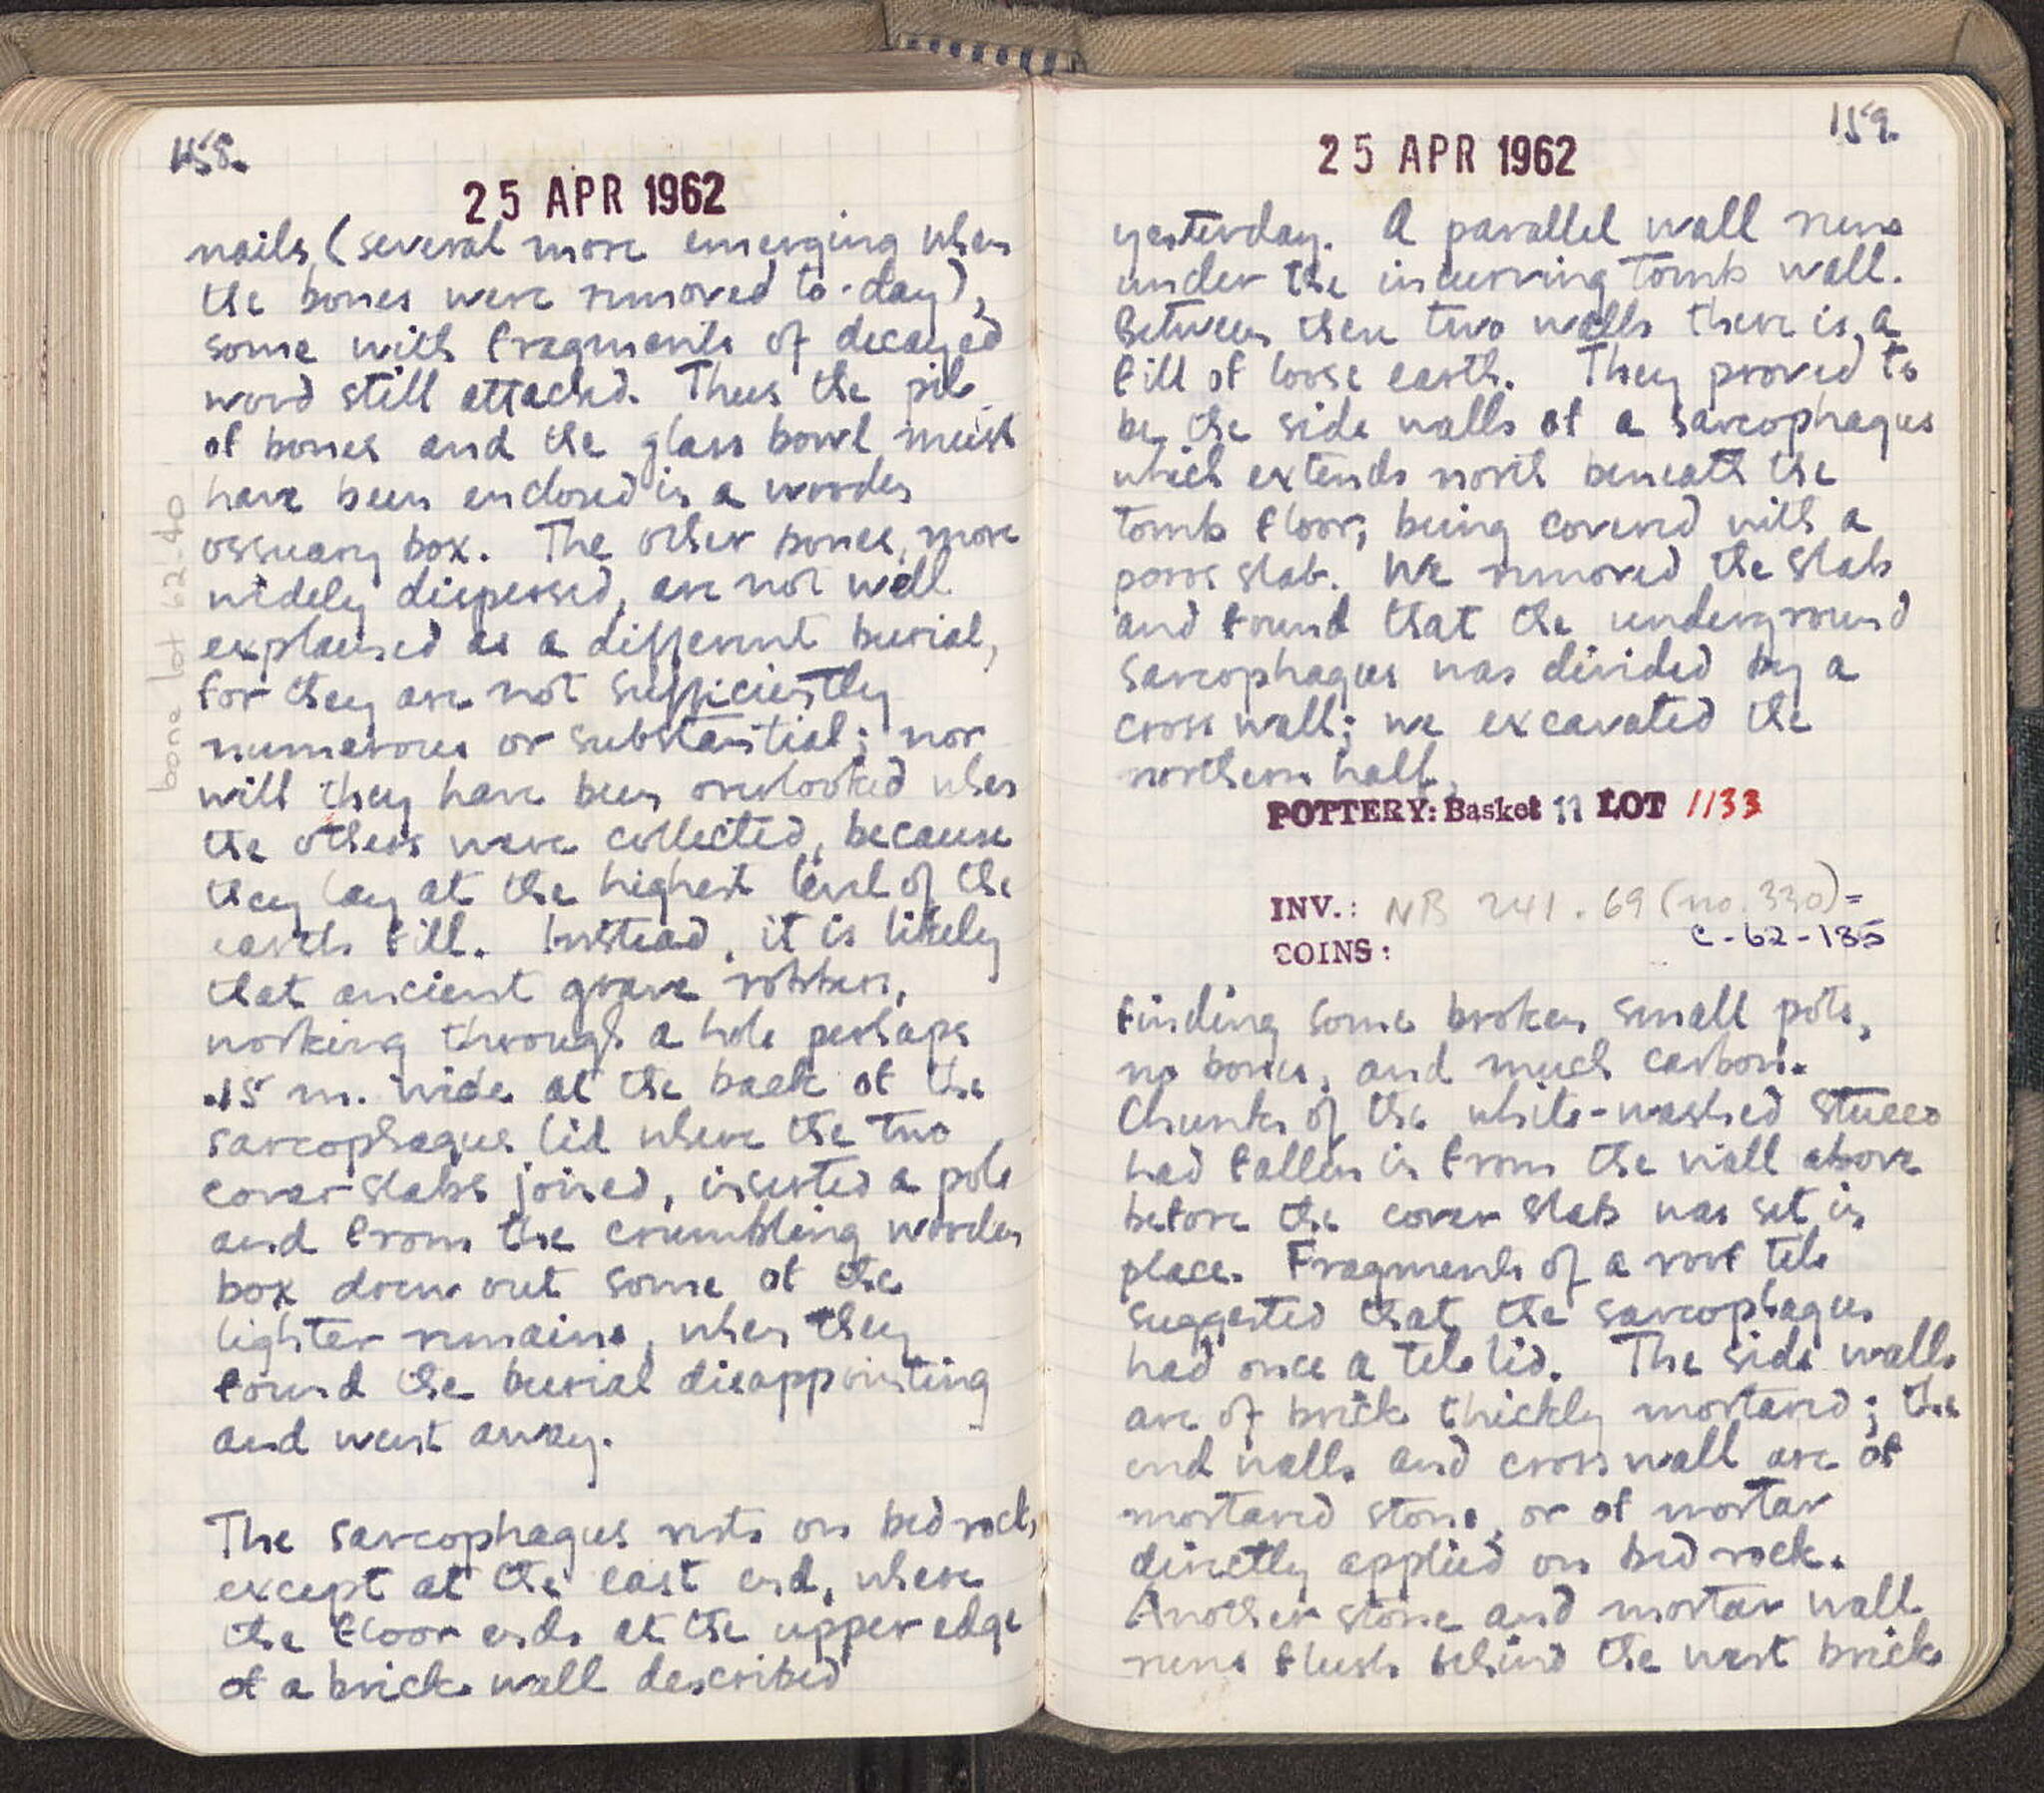 158.
25 APR 1962
nails, (several more emerging when
the bones were removed to-day),
some with fragments of decayed
wood still attached. Thus the pile
of bones and the glass bowl must
have been enclosed in a wooden
ossuary box. The other bones, more
widely dispersed, are not well
explained as a different burial,
for they are not sufficiently
numerous or substantial; nor
will they have been overlooked when
the others were collected, because
they lay at the highest level of the
earth fill. Instead, it is likely
that ancient grave robbers,
working through a hole perhaps
.15 m. wide at the back of the
sarcophagus lid where the two
cover slabs joined, inserted a pole
and from the crumbling wooden
box drew out some of the
lighter remains, when they
found the burial disappointing
and went away.
The sarcophagus rests on bedrock,
except at the east end, where
the floor ends at the upper edge
of a brick wall described
bone lot 62-40
159.
25 APR 1962
yesterday. A parallel wall runs
under the incurving tomb wall.
Between these two walls there is a
fill of loose earth. They proved to
be the side walls of a sarcophagus
which extends north beneath the
tomb floor, being covered with a
poros slab. We removed the slab
and found that the underground
sarcophagus was divided by a
cross wall; we excavated the
northern half,
POTTERY: Basket 11 LOT 1133
INV.: NB 241.69 (no. 330) =
C-62-135
COINS:
finding some broken small pots,
no bones, and much carbon.
Chunks of the white-washed stucco
had fallen in from the wall above
before the cover slab was set in
place. Fragments of a roof tile
suggested that the sarcophagus
had once a tile lid. The side walls
are of brick thickly mortared; the
end walls and cross wall are of
mortared stone, or of mortar
directly applied on bedrock.
Another stone and mortar wall
runs flush behind the west brick